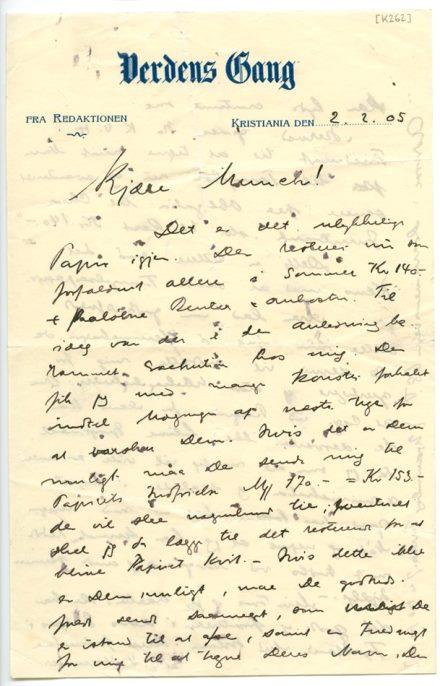 [K262]
Verdens Gang
FRA REDAKTIONEN
KRISTIANIA DEN 2. 2. 05
Kjære Munch!
Det er det ulykkelige
Papir igjen. Der resterer nu som
forfaldent allerede i Sommer Kr 140-
+ paaløbne Renter + omkostn. Til
idag var der i den anledning be
rammet hos mig. Den
fik jeg med mange Kunster forhalet
indtil af næste Uge for
at varsko Dem. Hvis det er Dem
muligt maa De sende mig til
Papirets Indfrielse M 170.- = Kr 153.-
de vil slaa til, eventuelt
skal jeg da lægge til det resterende for at
blive Papiret kvit. - Hvis dette ikke
er Dem muligt, maa De godhed.
sende saameget, som De
er istand til at afse, samt en Fuldmagt
for mig til at tegne Deres Navn, Den